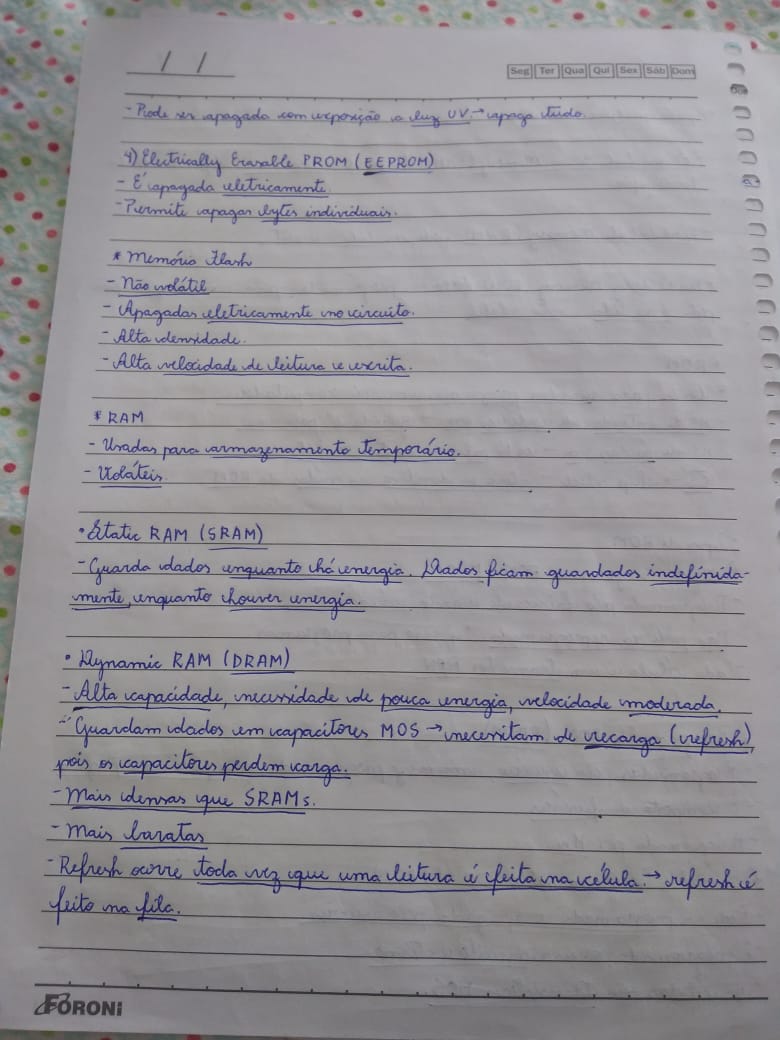 / /
Seg Ter Qua Qui Sex Sáb Dom
- Pode ser apagada com exposição a luz UV → apaga tudo.
4) Electrically Erasable PROM (EEPROM)
- É apagada eletricamente.
- Permite apagar bytes individuais.
* Memória Flash
- Não volátil
- Apagadas eletricamente no circuito.
- Alta densidade.
- Alta velocidade de leitura e escrita.
* RAM
- Usadas para armazenamento temporário.
- Voláteis
• Static RAM (SRAM)
- Guarda dados enquanto há energia. Dados ficam guardados indefinida-
mente, enquanto houver energia.
• Dynamic RAM (DRAM)
- Alta capacidade, necessidade de pouca energia, velocidade moderada.
- Guardam dados em capacitores MOS → necessitam de recarga (refresh),
pois os capacitores perdem carga.
- Mais densas que SRAMs.
- Mais baratas
- Refresh ocorre toda vez que uma leitura é feita na célula. → refresh é
feito na fila.
FORONI